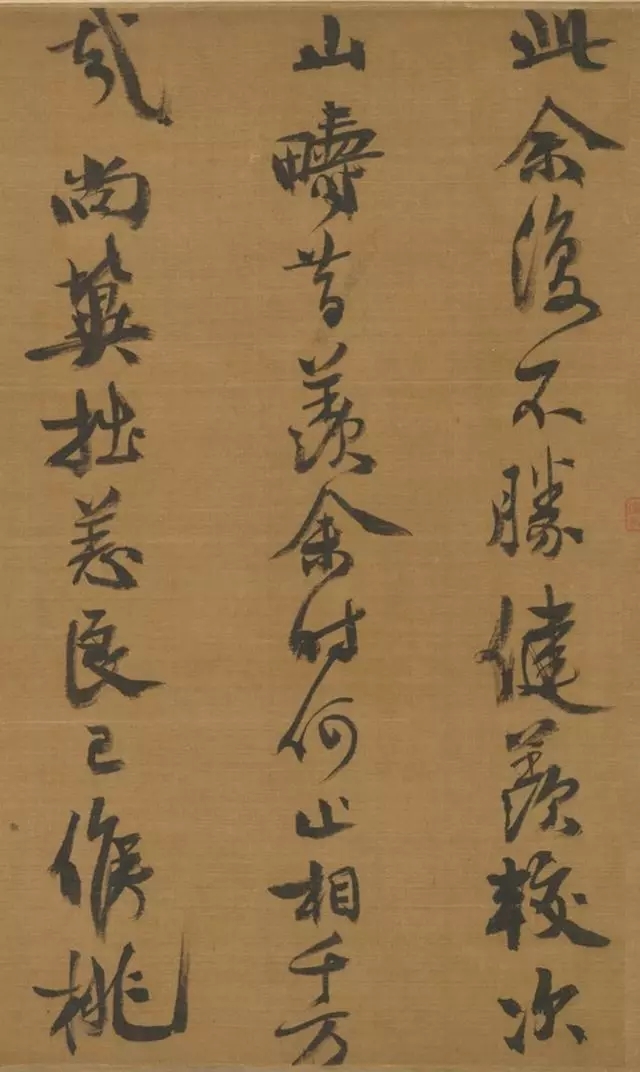 此余復不勝健羨較次
山疇昔羨余时何止相千万
哉尚冀拙恙良已候桃